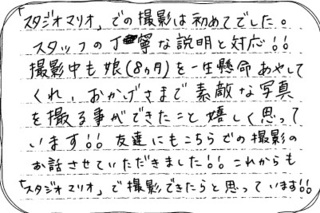 「スタジオマリオ」での撮影は初めてでした。
スタッフの丁寧な説明と対応!!
撮影中も娘(8ヵ月)を一生懸命あやして
くれ、おかげさまで素敵な写真
を撮る事ができたこと嬉しく思って
います!!友達にもこちらでの撮影の
お話させていただきました!!これからも
「スタジオマリオ」で撮影できたらと思っています!!